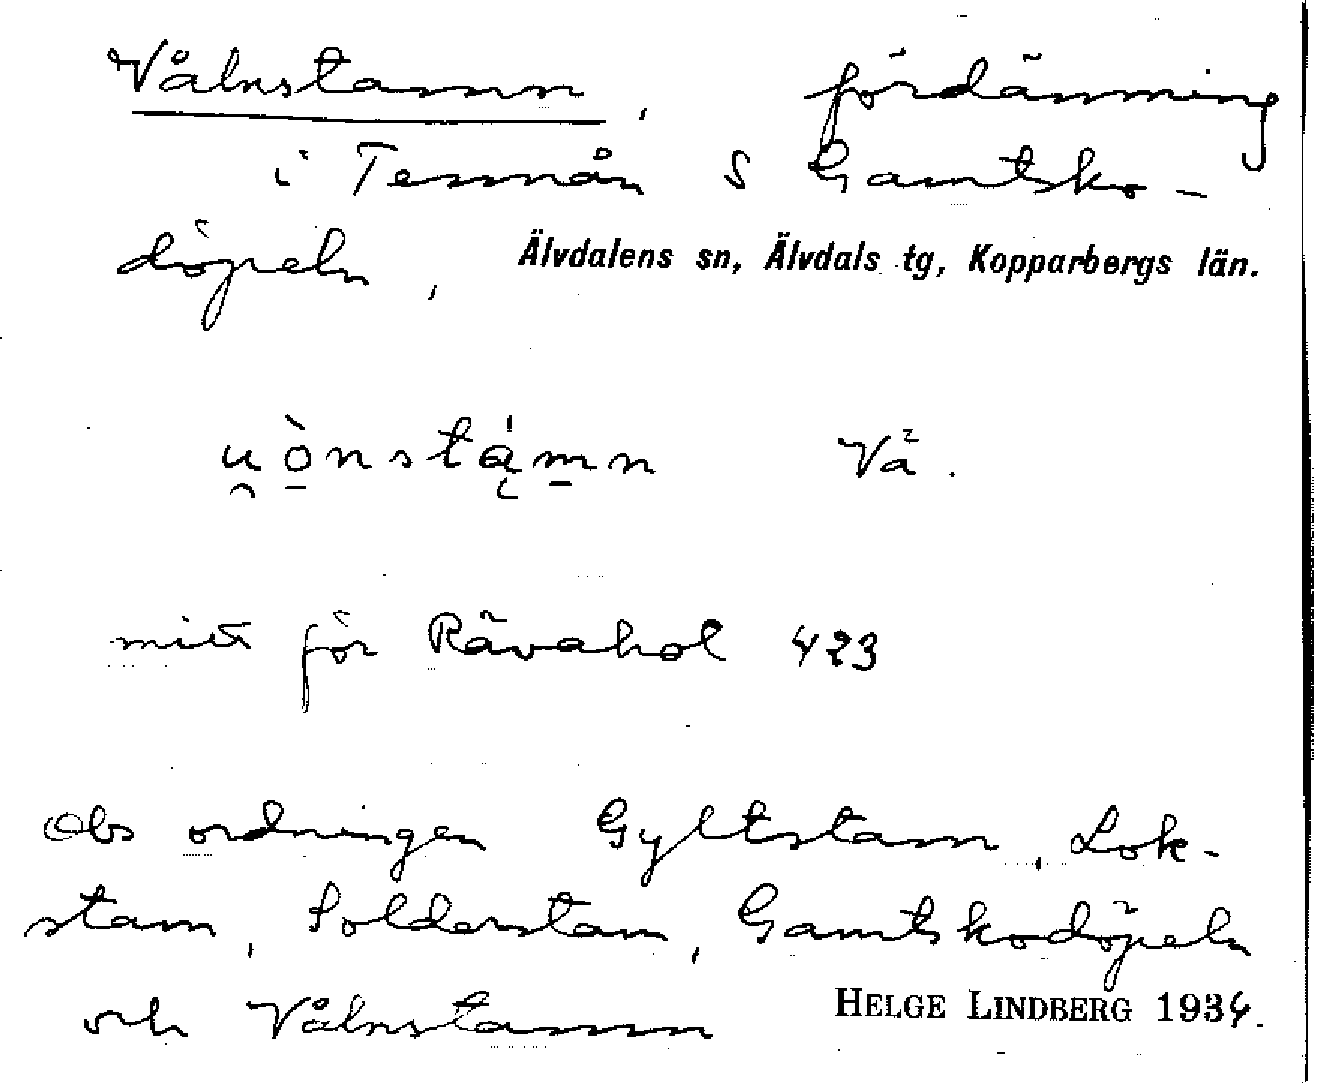 Vålnstamn, fördämning
i Tennån S Gamtsko-
döpeln, Älvdalens sn, Älvdals tg, Kopparbergs län.
u̯ò̱nstą́m̱n Vå.
mitt för Rävahol 423
Obs ordningen Gyltstam, Lok-
stam, Solderstam, Gamtskodöpeln
och Vålnstamn HELGE LINDBERG 1934.